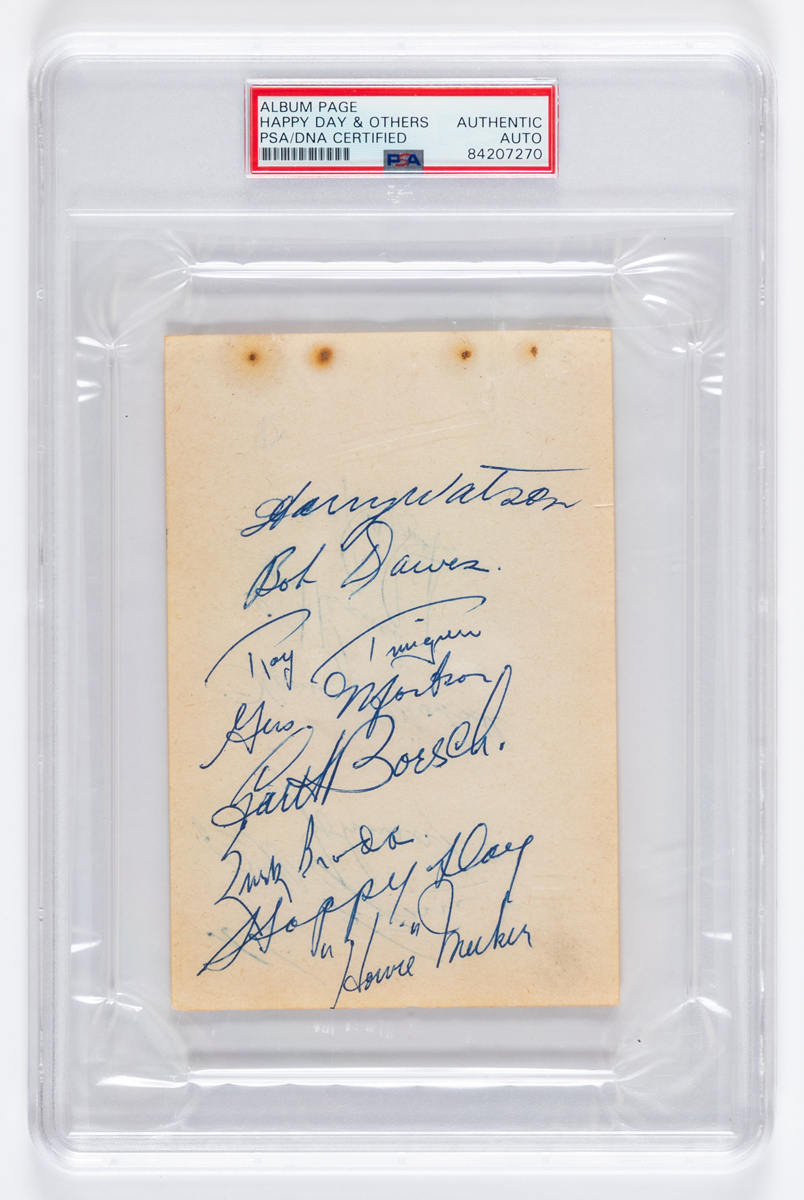 ALBUM PAGE
HAPPY DAY & OTHERS AUTHENTIC
PSA/DNA CERTIFIED AUTO
PSA 84207270
Harry Watson
Bob Dawes.
Ray Timgren
Gus. Mortson
Garth Boesch.
Turk Broda.
Happy Day
"Howie" Meeker